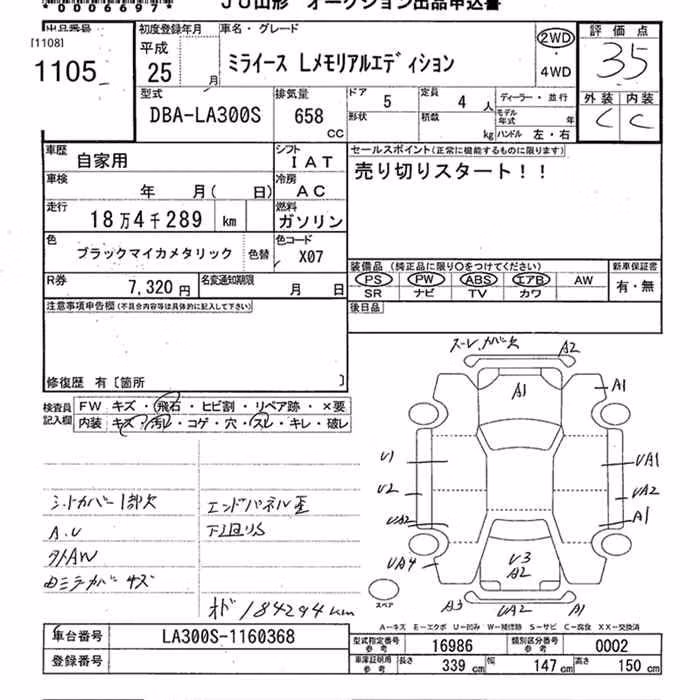 *00006697*
JU山形 オークション出品申込書
出品番号
[1108]
1105
初度登録年月
平成
25 月
車名・グレード
ミライース Lメモリアルエディション
2WD
・
4WD
評価点
35
外装 内装
C C
型式
DBA-LA300S
排気量
658
CC
ドア 5
形状
定員 4 人
積載 kg
ディーラー・並行
モデル年式 年
ハンドル 左・右
車歴
自家用
シフト
IAT
車検
年 月( 日)
冷房
AC
走行
18万4千289 km
燃料
ガソリン
色
ブラックマイカメタリック
色替
色コード
X07
R券
7,320円
名変通知期限
月 日
セールスポイント(正常に機能するものに限ります)
売り切りスタート!!
装備品 (純正品に限り○をつけてください)
PS PW ABS エアB AW
SR ナビ TV カワ
新車保証書
有・無
後日品
注意事項申告欄(不具合内容等は具体的に記入して下さい)
修復歴 有〔箇所 〕
検査員
記入欄
FW キズ・飛石・ヒビ割・リペア跡・×要
内装 キズ・汚レ・コゲ・穴・スレ・キレ・破レ
シートカバー1部欠
A.U
外AW
エンドパネル歪
下廻りS
オド 184294km
A2
A1
A1
U1
U2
UA2
UA4
UA1
UA2
A1
U3
A2
A3
UA2
A1
スペア
A-キズ E-エクボ U-凹み W-補修跡 S-サビ C-腐食 XX-交換済
車台番号
LA300S-1160368
登録番号
型式指定番号
参考
16986
類別区分番号
参考
0002
車庫証明用
参考
長さ 339 cm
幅 147 cm
高さ 150 cm